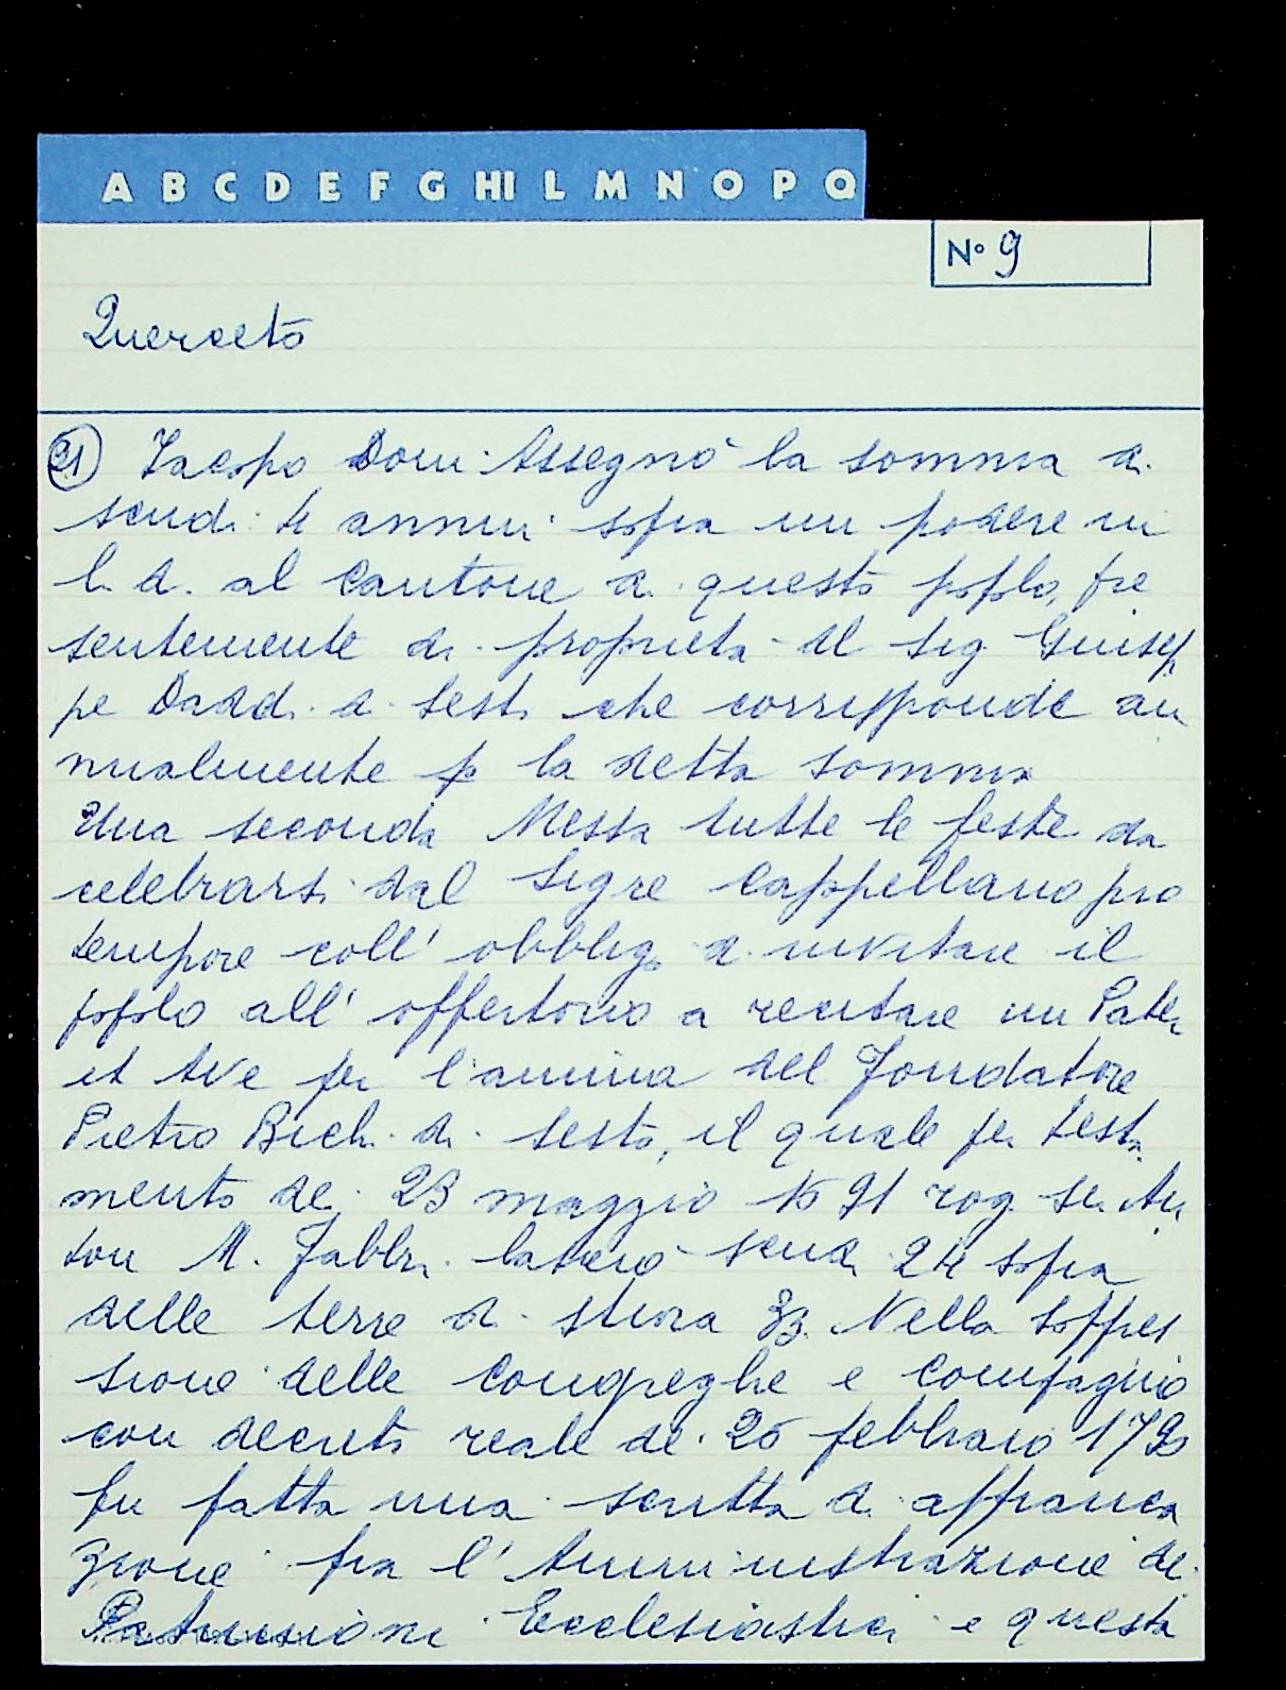 A B C D E F G HI L M N O P Q
N° 9
Querceto
21) Jacopo Doni Assegnò la somma di
scudi 4 annui sopra un podere in
l. d. al Cantone di questo popolo, pre
sentemente di proprietà del Sig Giusep
pe Daddi di Sesto che corrisponde an
nualmente p la detta somma
Una seconda Messa tutte le feste da
celebrarsi dal Sigre Cappellano pro
tempore coll' obbligo di invitare il
popolo all' offertorio a recitare un Pater
et Ave per l'anima del Fondatore
Pietro Bichi di Sesto, il quale per testa
mento del 23 maggio rog. Ser An
ton M. Fabbri lasciò scudi 24 sopra
delle terre di stiora 33. Nella soppres
sione delle Congreghe e Compagnie
con decreto reale del febbraio
fu fatta una scritta di affranca
zione fra l' Amministrazione dei
Patrimoni Ecclesiastici e questa